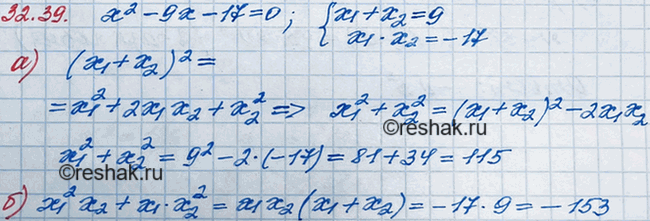 32.39. x² - 9x - 17 = 0; { x₁ + x₂ = 9
x₁ · x₂ = -17
а) (x₁ + x₂)² =
= x₁² + 2x₁x₂ + x₂² => x₁² + x₂² = (x₁ + x₂)² - 2x₁x₂
©reshak.ru
x₁² + x₂² = 9² - 2·(-17) = 81 + 34 = 115
©reshak.ru
б) x₁²x₂ + x₁·x₂² = x₁x₂(x₁ + x₂) = -17·9 = -153